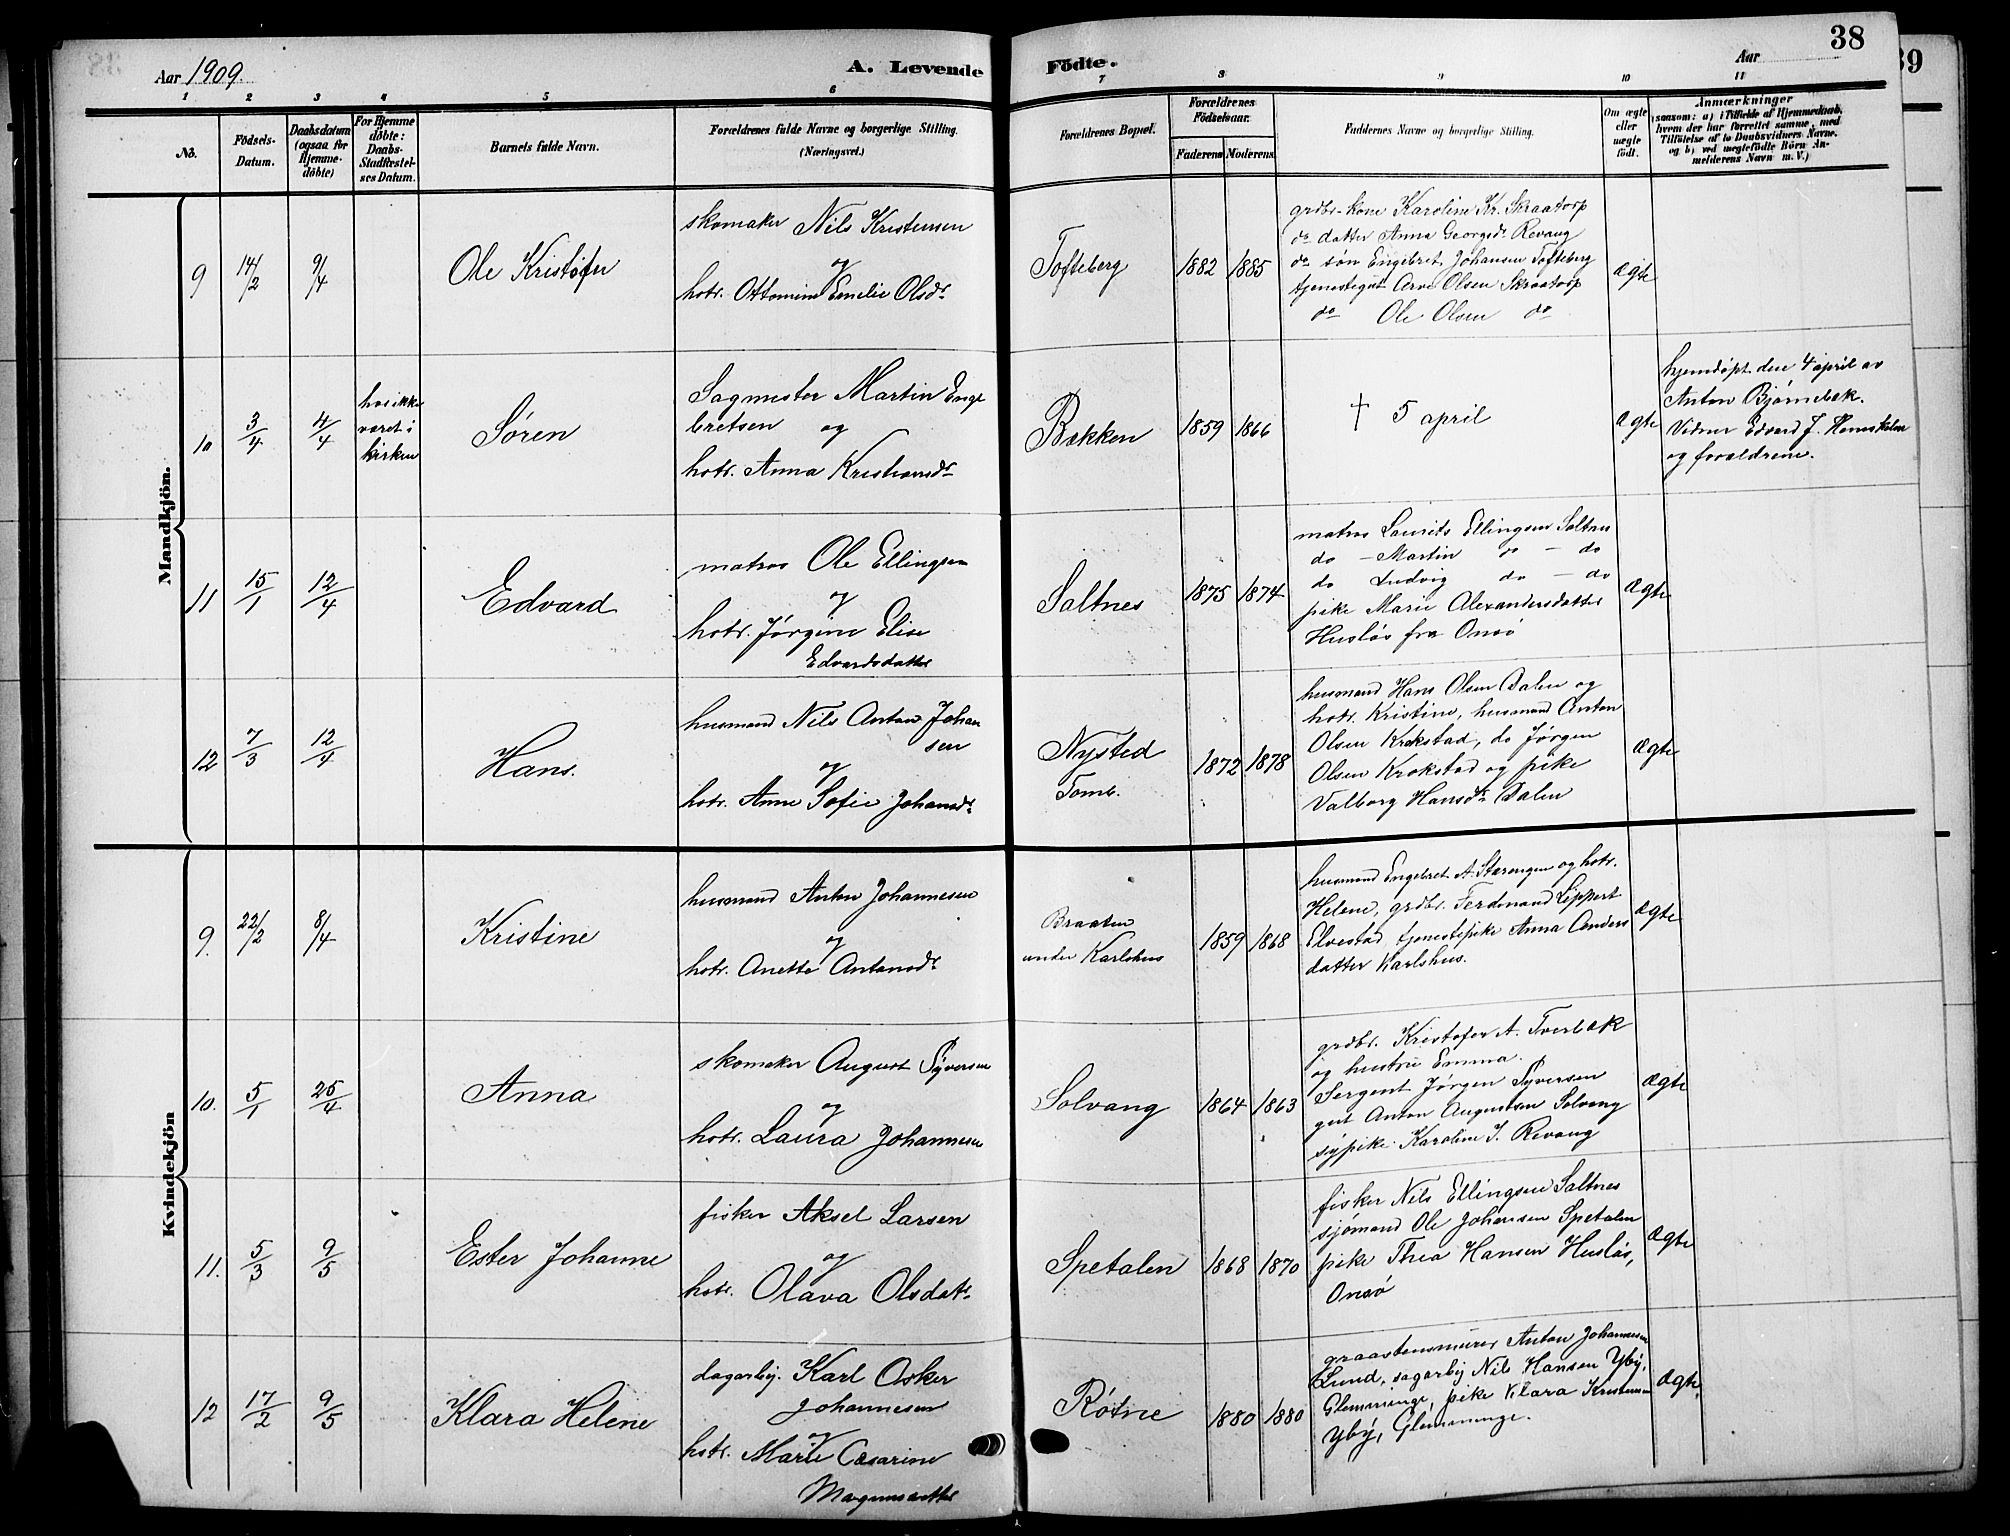 Aar 1909.
A. Levende
Födte.
Aar
38
39
1 2 3 4 5 6 7 8 9 10 11
No.
Födsels-
Datum.
Daabsdatum
(ogsaa for
Hjemme-
döbte)
For Hjemme
döbte:
Daabs-
Stadfæstel-
ses Datum.
Barnets fulde Navn.
Forældrenes fulde Navne og borgerlige Stilling.
(Næringsvei.)
Forældrenes Bopæl.
Forældrenes
Födselsaar.
Faderens Moderens
Faddernes Navne og borgerlige Stilling.
Om ægte
eller
uægte
födt.
Anmærkninger
(saasom: a) i Tilfælde af Hjemmedaab,
hvem der har forrettet samme, med
Tilföielse af to Daabsvidners Navne.
og b) ved uægtefödte Börn An-
melderens Navn m. V.)
Mandkjön.
9
14/2
9/4
Ole Kristofer
skomaker Nils Kristensen
og
hstr. Ottomine Emelie Olsdr
Tofteberg
1882 1885
grdbr-kone Karoline Kr. Skraatorp
do datter Anna Georgsdr Revaug
do søn Engebret Johansen Tofteberg
tjenestegut Arve Olsen Skraatorp
do Ole Olsen do
ægte
10
3/4
4/4
har ikke
været i
kirken
Søren
Sagmester Martin Enge
bretsen og
hstr. Anna Kristiansdr
Bækken
1859 1866
† 5 april
ægte
hjemdøpt den 4 april av
Anton Bjørnebæk.
Vidner Edvard J.
og forældrene.
11
15/1
12/4
Edvard
matros Ole Ellingsen
og
hstr. Jørgine Elise
Edvardsdatter
Saltnes
1875 1874
matros Laurits Ellingsen Saltnes
do - Martin do - do
do Ludvig do - do
pike Marie Alexandersdatter
Husløs fra Onsø
ægte
12
7/3
12/4
Hans.
husmand Nils Anton Johan
sen
og
hstr. Anne Sofie Johansdr
Nysted
Tomb.
1872 1878
husmand Hans Olsen Dalen og
hstr. Kristine, husmand Anton
Olsen Krokstad, do Jørgen
Olsen Krokstad og pike
Valborg Hansdr Dalen
ægte
Kvindekjön
9.
22/2
8/4
Kristine
husmand Anton Johannesen
og
hstr. Anette Antonsdr
Braaten
under Karlshus
1859 1868
husmand Engebret A. Størengen og hstr.
Helene, grdbr. Ferdinand Lippert
Elvestad, tjenestepike Anna Anders
datter Karlshus.
ægte
10.
5/1
25/4
Anna
skomaker August Syversen
og
hstr. Laura Johannesen
Solvang
1864 1863
grdbr. Kristofer A. Tverbæk
og hustru Emma.
Sergent Jørgen Syversen
gut Anton Augustsen Solvang
sypike Karoline J. Revaug
ægte
11.
5/3
9/5
Ester Johanne
fisker Aksel Larsen
og
hstr. Olava Olsdatr
Spetalen
1868 1870
fisker Nils Ellingsen Saltnes
sjømand Ole Johansen Spetalen
pike Thea Hansen Husløs,
Onsø
ægte
12
17/2
9/5
Klara Helene
dagarbj. Karl Oskar
Johannesen
og
hstr. Marie Cæsarine
Magnusdatter
Røtne
1880 1880
graastensmurer Anton Johannesen
Lund, sagarbj Nils Hansen Yby,
Glemminge, pike Klara Kristensen
Yby, Glemminge.
ægte